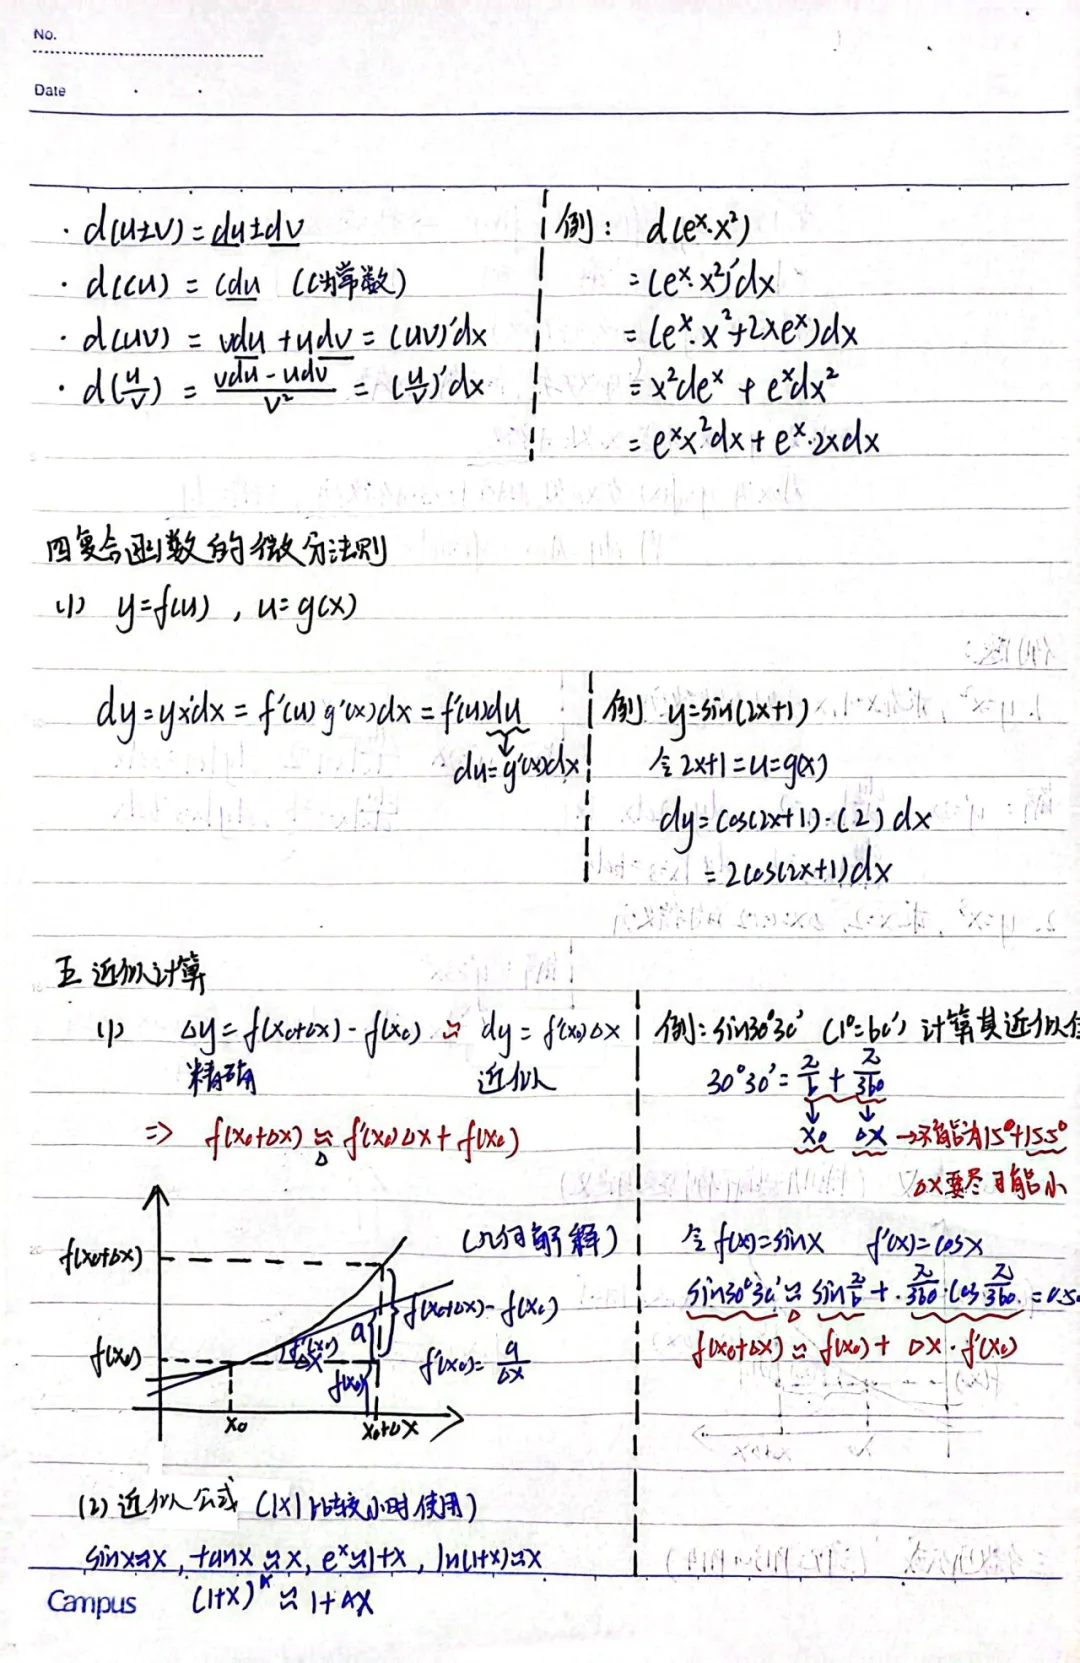 No.
Date
· d(u±v) = du±dv
· d(cu) = cdu (c为常数)
· d(uv) = vdu + udv = (uv)'dx
· d(u/v) = (vdu - udv)/v² = (u/v)'dx
例: d(eˣ·x²)
= (eˣ·x²)'dx
= (eˣ·x²+2xeˣ)dx
= x²deˣ + eˣdx²
= eˣx²dx + eˣ·2xdx
四 复合函数的微分法则
(1) y=f(u) , u=g(x)
dy = yx'dx = f'(u) g'(x)dx = f'(u)du
↓
du=g'(x)dx
例 y=sin(2x+1)
令 2x+1=u=g(x)
dy = cos(2x+1)·(2) dx
= 2cos(2x+1)dx
五 近似计算
(1) Δy = f(x₀+Δx) - f(x₀) ≈ dy = f'(x₀)Δx
精确 近似
=> f(x₀+Δx) ≈ f'(x₀)Δx + f(x₀)
例: sin30°30' (1°=60') 计算其近似值
30°30' = π/6 + π/360
↓ ↓
x₀ Δx →不能为15°+15.5°
Δx要尽可能小
令 f(x)=sinx f'(x)=cosx
sin30°30' ≈ sin π/6 + π/360·cos π/360 = 0.50
f(x₀+Δx) ≈ f(x₀) + Δx·f'(x₀)
(几何解释)
f(x₀+Δx)
f(x₀+Δx) - f(x₀)
f(x₀)
f'(x₀)
Δx
a
f(x₀)
f'(x₀) = a/Δx
x₀
x₀+Δx
(2) 近似公式 (|x|比较小时使用)
sinx≈x , tanx≈x, eˣ≈1+x, ln(1+x)≈x
(1+x)^α ≈ 1+αx
Campus